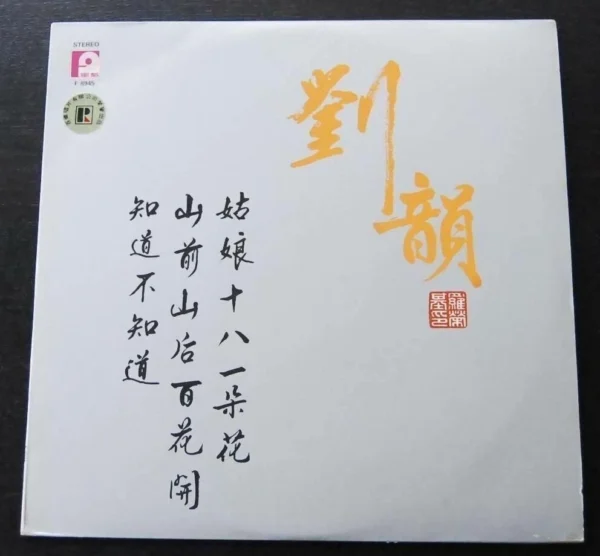 STEREO
劉韻
姑娘十八一朵花
山前山后百花開
知道不知道
R